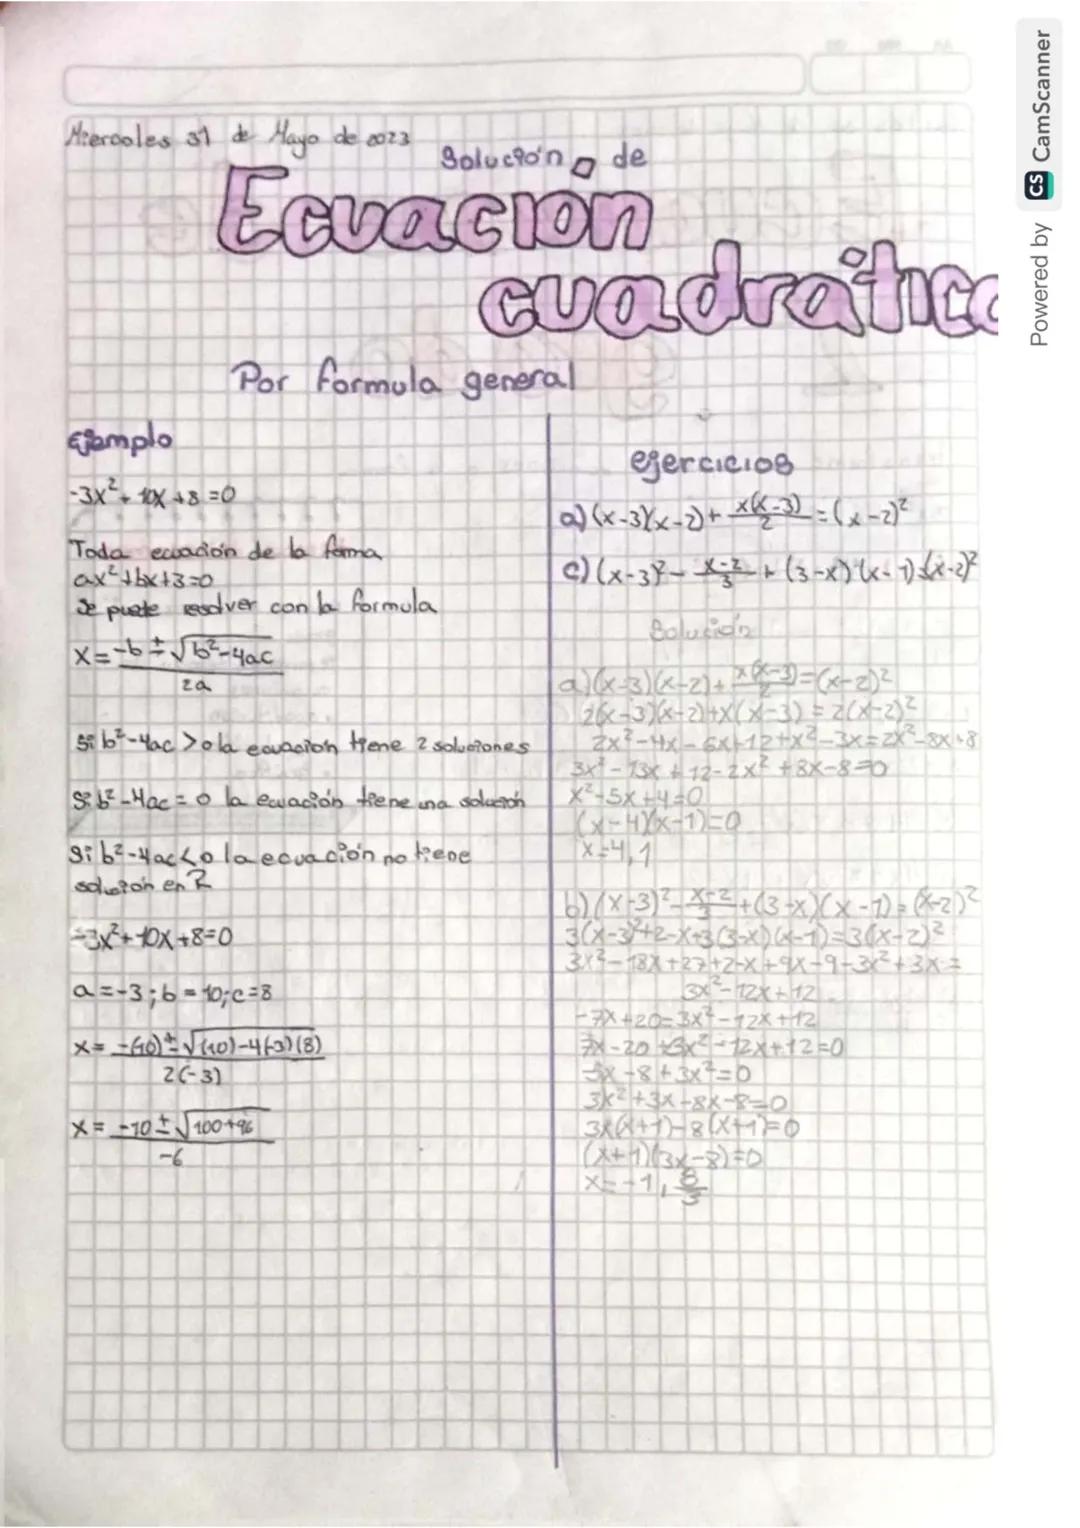 Miercoles 31 de Mayo de 2023
Solución de
Ecuación
cuadrática
Por formula general
Ejemplo
-3x²+10x+8=0
Toda ecuación de la forma
ax²+bx+3=0
Se puede resolver con la formula
x=-b±√b²-4ac
2a
Si b²-4ac>0 la ecuación tiene 2 soluciones
Si b²-4ac=0 la ecuación tiene una solución
Si b²-4ac<0 la ecuación no tiene
solución en R
-3x²+10x+8=0
a=-3;b=10;c=8
x= -(10)±√(10)-4(-3)(8)
2(-3)
x= -10±√100+96
-6
ejercicios
a)(x-3)(x-2)+ x(x-3)/2 =(x-2)²
c)(x-3)²- x-2/3 + (3-x)(x-1)=(x-2)²
Solución
a)(x-3)(x-2)+ x(x-3)/2 =(x-2)²
2(x-3)(x-2)+x(x-3)=2(x-2)²
2x²-4x-6x+12+x²-3x=2x²-8x+8
3x²-13x+12-2x²+8x-8=0
x²-5x+4=0
(x-4)(x-1)=0
x=4,1
b)(x-3)²- x-2/3 +(3-x)(x-1)=(x-2)²
3(x-3)²+2-x+3(3-x)(x-1)=3(x-2)²
3x²-18x+27+2-x+9x-9-3x²+3x=
3x²-12x+12
-7x+20=3x²-12x+12
7x-20+3x²-12x+12=0
-5x-8+3x²=0
3x²+3x-8x-8=0
3x(x+1)-8(x+1)=0
(x+1)(3x-8)=0
x=-1, 8/3
Powered by CS CamScanner